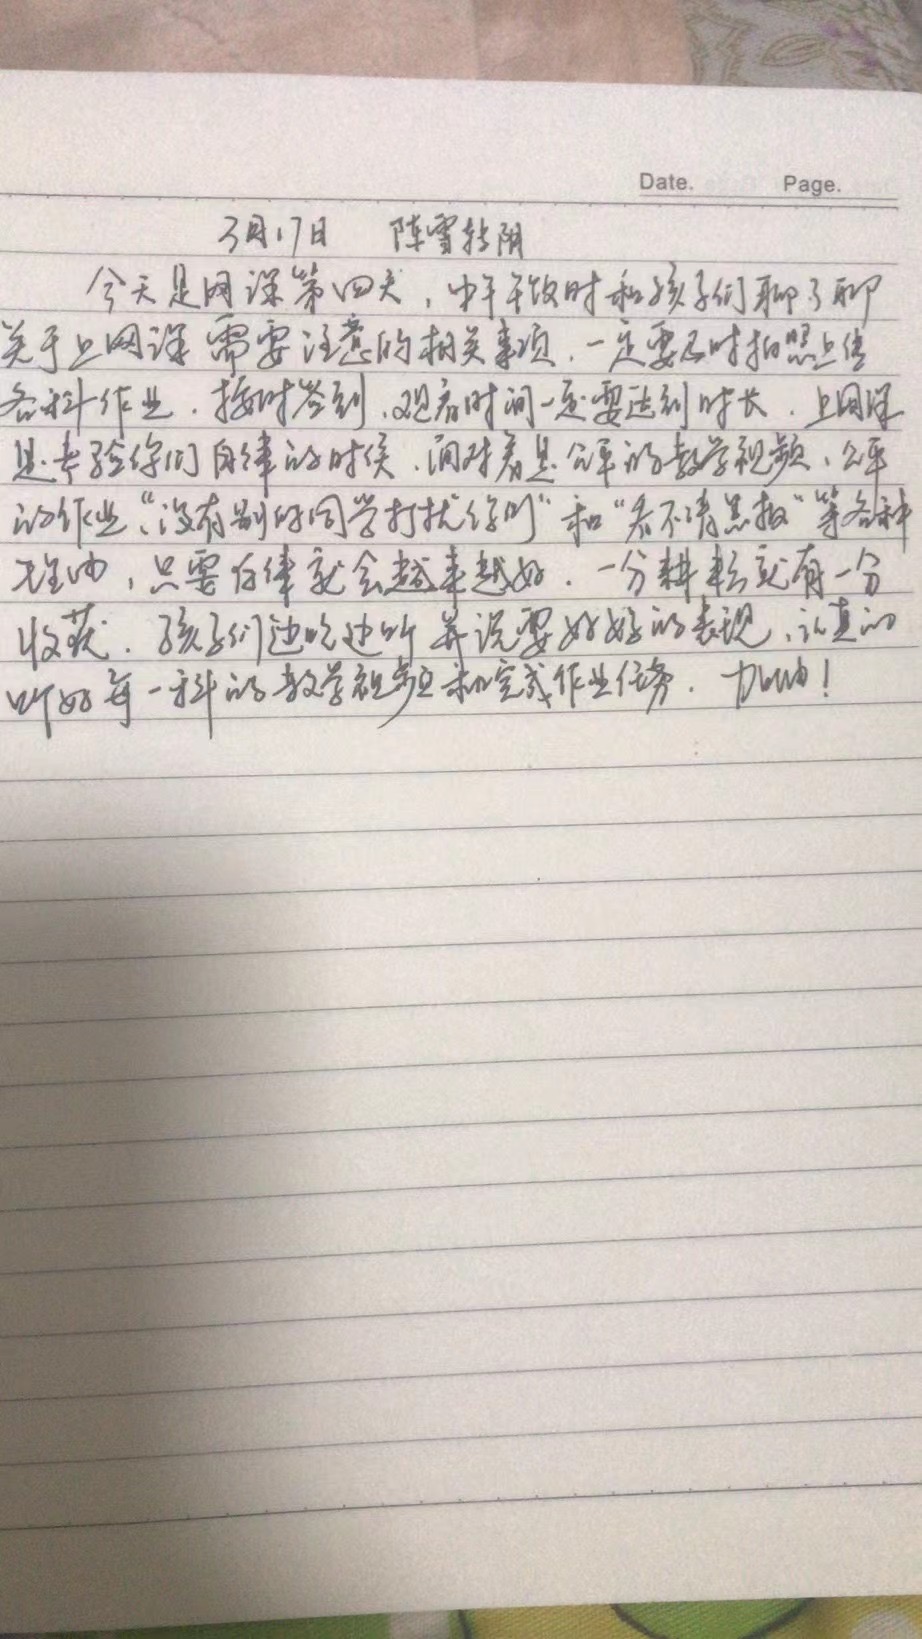 Date. Page.
3月17日 阵雪转阴
今天是网课第四天，中午午饭时和孩子们聊了聊
关于上网课需要注意的相关事项，一定要及时拍照上传
各科作业，按时签到，观看时间一定要达到时长，上网课
是考验你们自律的时候，面对着是公平的教学视频，公平
的作业，“没有别的同学打扰你们”和“看不清黑板”等各种
理由，只要自律就会越来越好，一分耕耘就有一分
收获，孩子们边吃边听并说要好好的表现，认真的
听好每一科的教学视频和完成作业任务，加油！